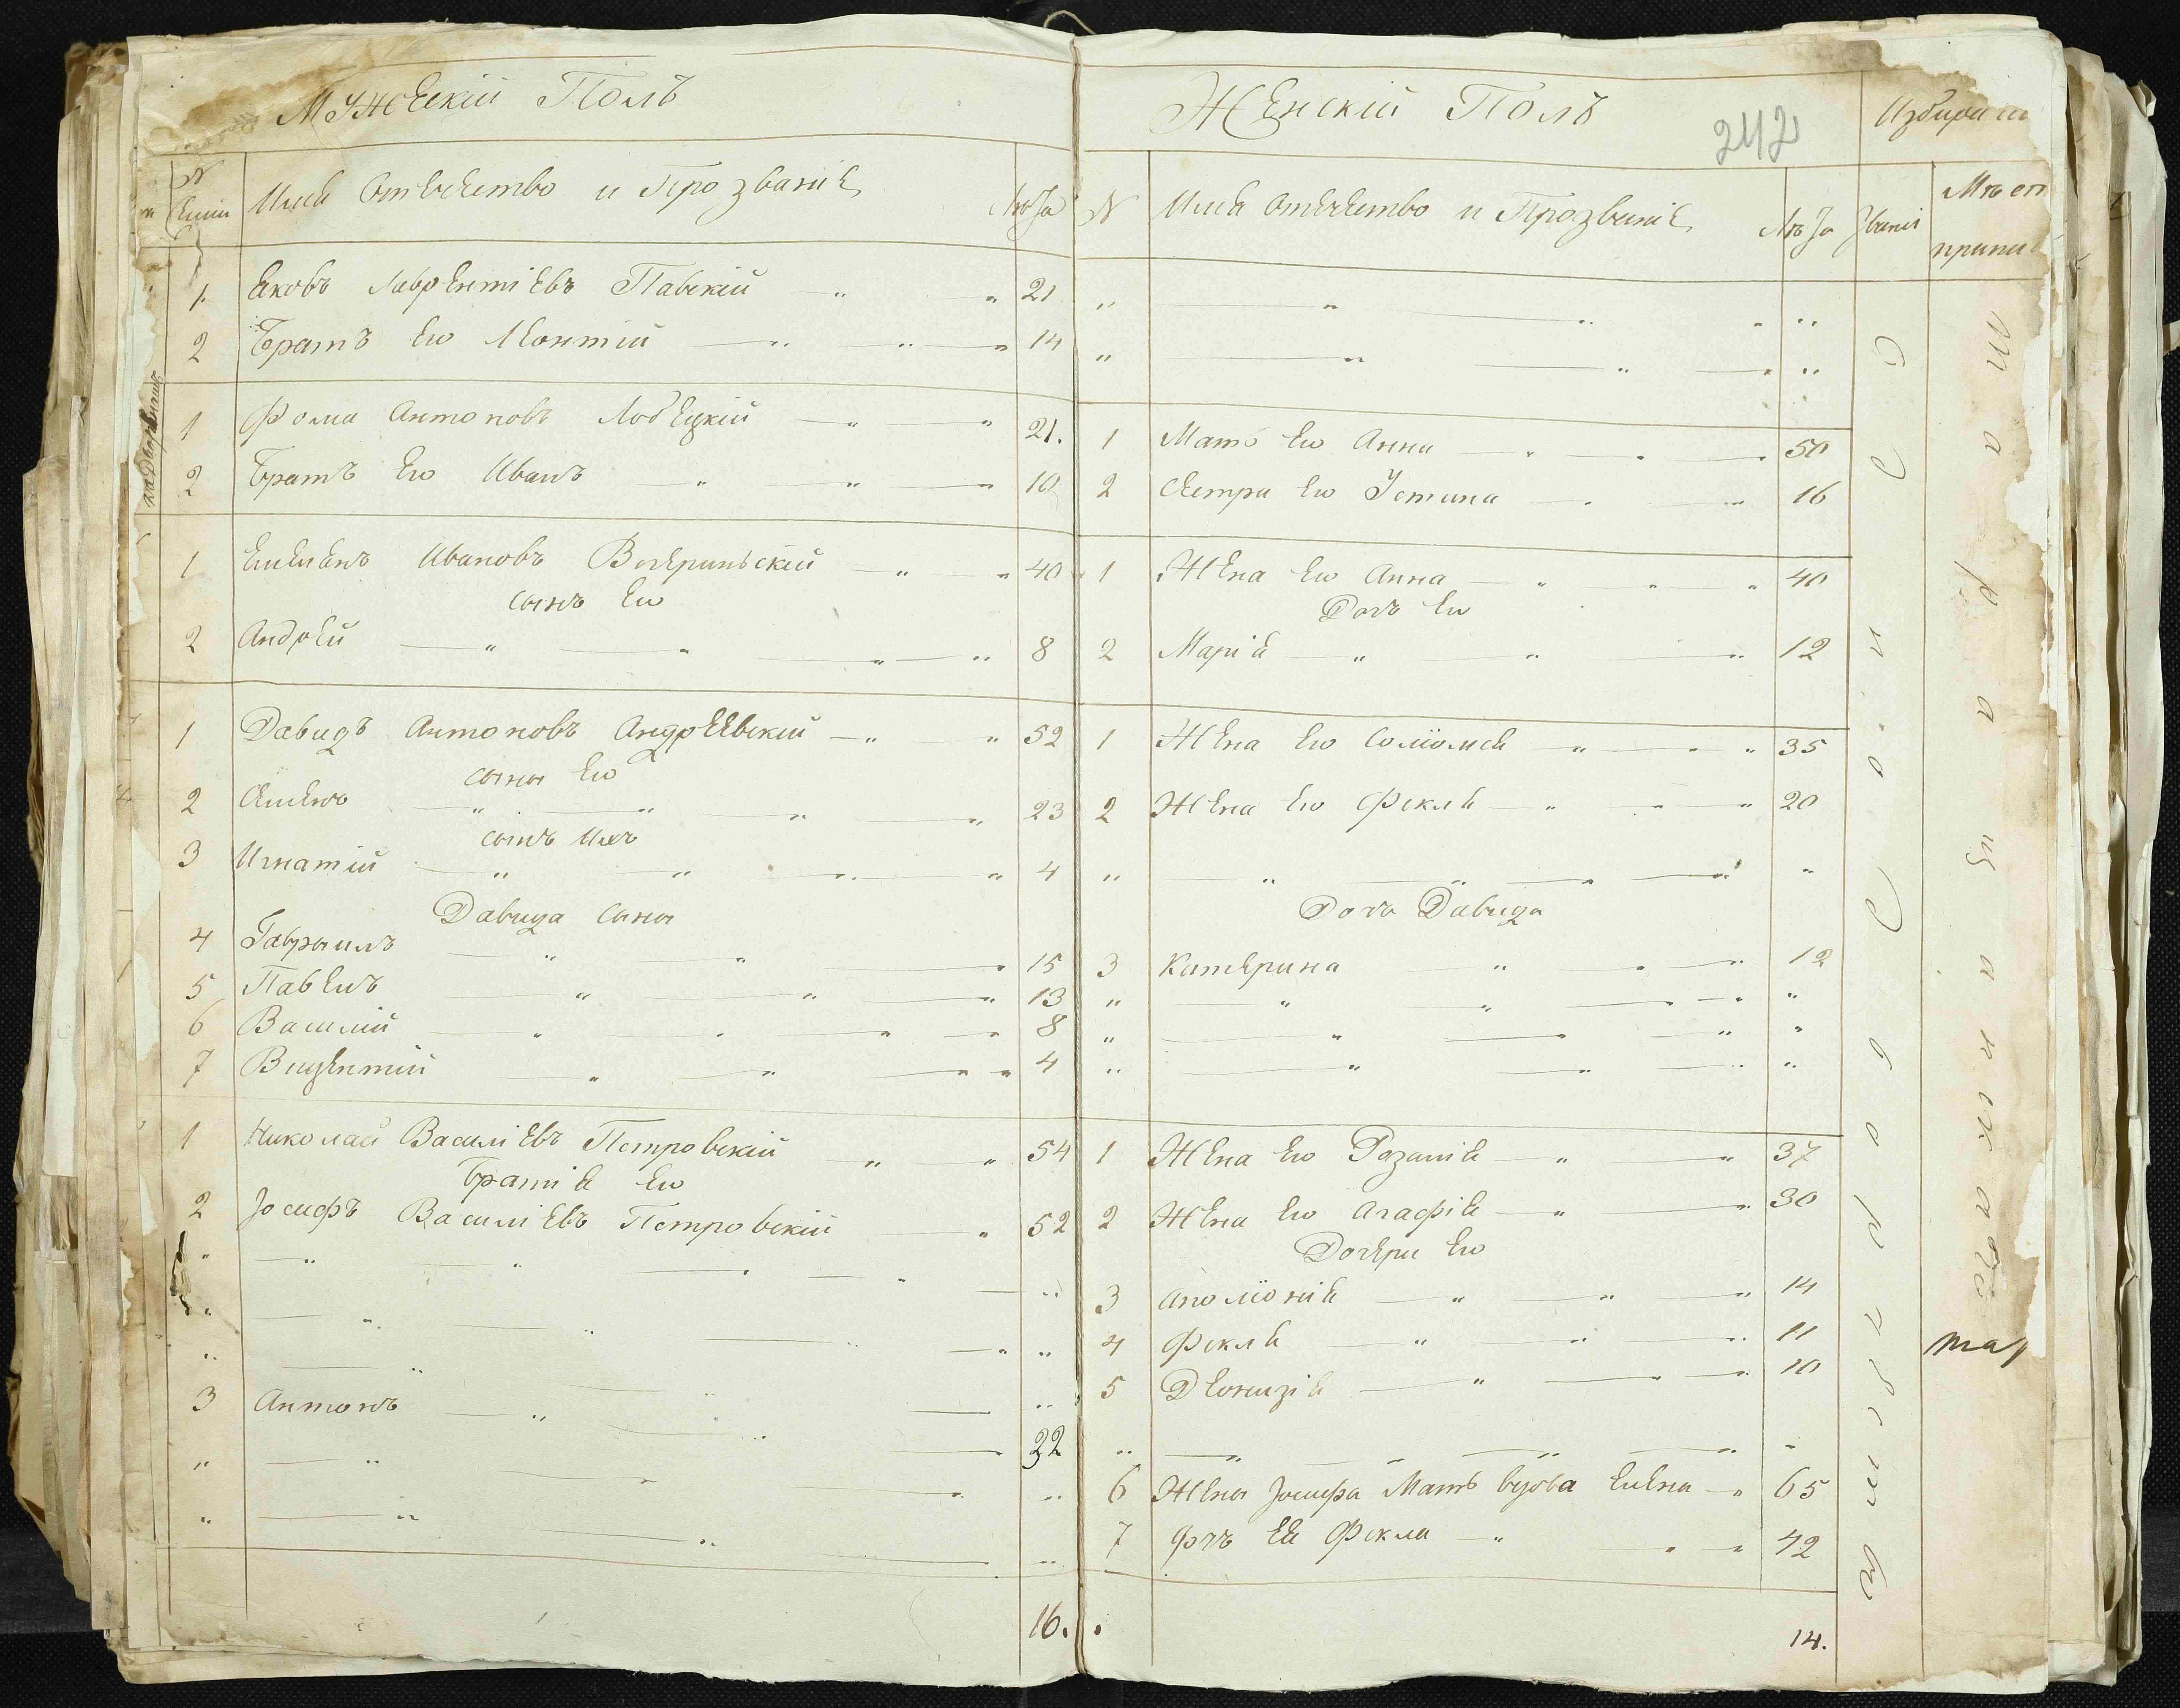 Мужескій Полъ
N
Имя Отечество и Прозваніе
Лѣта
1 Яковъ Лаврентіевъ Павскій 21
2 Братъ Его Леонтій 14
1 Фома Антоновъ Лобецкій 21.
2 Братъ Его Иванъ 10
1 Емелянъ Ивановъ 40
сынъ Его
2 Андрей 8
1 Давидъ Антоновъ Андреевскій 52
сыны Его
2 Семенъ 23
сынъ Ихъ
3 Игнатій 4
Давида сыны
4 Гаврыилъ 15
5 Павелъ 13
6 Василій 8
7 Вицентий 4
1 Николай Василіевъ Петровскій 54
Братія Его
2 Іосифъ Василіевъ Петровскій 52
3 Антонъ 22
16.
Женскій Полъ
242
N
Имя Отечество и Прозваніе
Лѣта
Званія
1 Мать Его Анна 50
2 Сестра Его Устина 16
1 Жена Его Анна 40
Дочь Его
2 Марія 12
1 Жена Его Соломея 35
2 Жена Его Фекля 20
Дочь Давида
3 Катерина 12
1 Жена Его Розалія 37
2 Жена Его Агафія 30
Дочери Его
3 Аполіонія 14
4 Фекля 11
5 Деонизія 10
6 Жены Іосифа Мать вдова Елена 65
7 Дочь Ея Фекла 42
14.